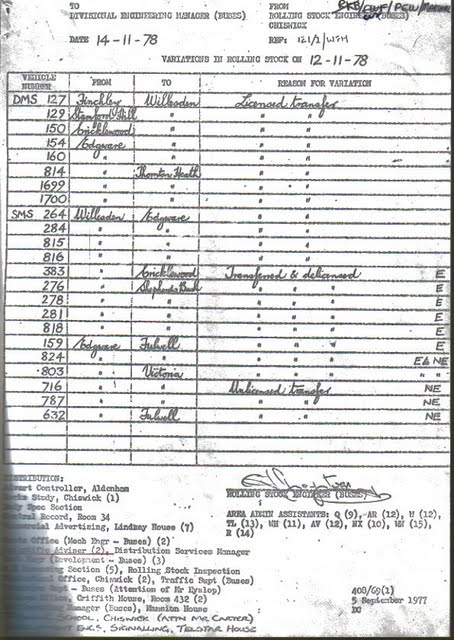 TO FROM
DIVISIONAL ENGINEERING MANAGER (BUSES) ROLLING STOCK ENGINEER (BUSES)
CHISWICK
DATE 14-11-78 REF: 121/1/WSH
VARIATIONS IN ROLLING STOCK ON 12-11-78
VEHICLE NUMBER FROM TO REASON FOR VARIATION
DMS 127 Finchley Willesden Licensed transfer
129 Stamford Hill " " "
150 Cricklewood " " "
154 Edgware " " "
160 " " " "
814 " Thornton Heath " "
1699 " " " "
1700 " " " "
SMS 264 Willesden Edgware " "
284 " " " "
815 " " " "
816 " " " "
383 " Cricklewood Transferred & delicensed E
276 " Shepherds Bush " " " E
278 " " " " " E
281 " " " " " E
818 " " " " " E
159 Edgware Fulwell " " " E
824 " " " " " E & NE
803 " Victoria " " " " "
716 " " Unlicensed transfer NE
787 " " " " NE
632 " Fulwell " " NE
DISTRIBUTION:
Controller, Aldenham
Study, Chiswick (1)
Spec Section
Record, Room 34
Advertising, Lindsey House (7)
Office (Mech Engr - Buses) (2)
Adviser (2), Distribution Services Manager
(Development - Buses) (3)
Section (5), Rolling Stock Inspection
Office, Chiswick (2), Traffic Supt (Buses)
Dept - Buses (Attention of Mr Hyslop)
Griffith House, Room 432 (2)
Manager (Buses), Mansion House
SCHOOL, CHISWICK (ATTN MR. CARTER)
ENGS, SIGNALLING, TELSTAR HOUSE
ROLLING STOCK ENGINEER (BUSES)
AREA ADMIN ASSISTANTS: Q (9), AR (12), U (12),
TL (13), WH (11), AV (12), NX (10), WN (15),
R (14)
408/69(1)
5 September 1977